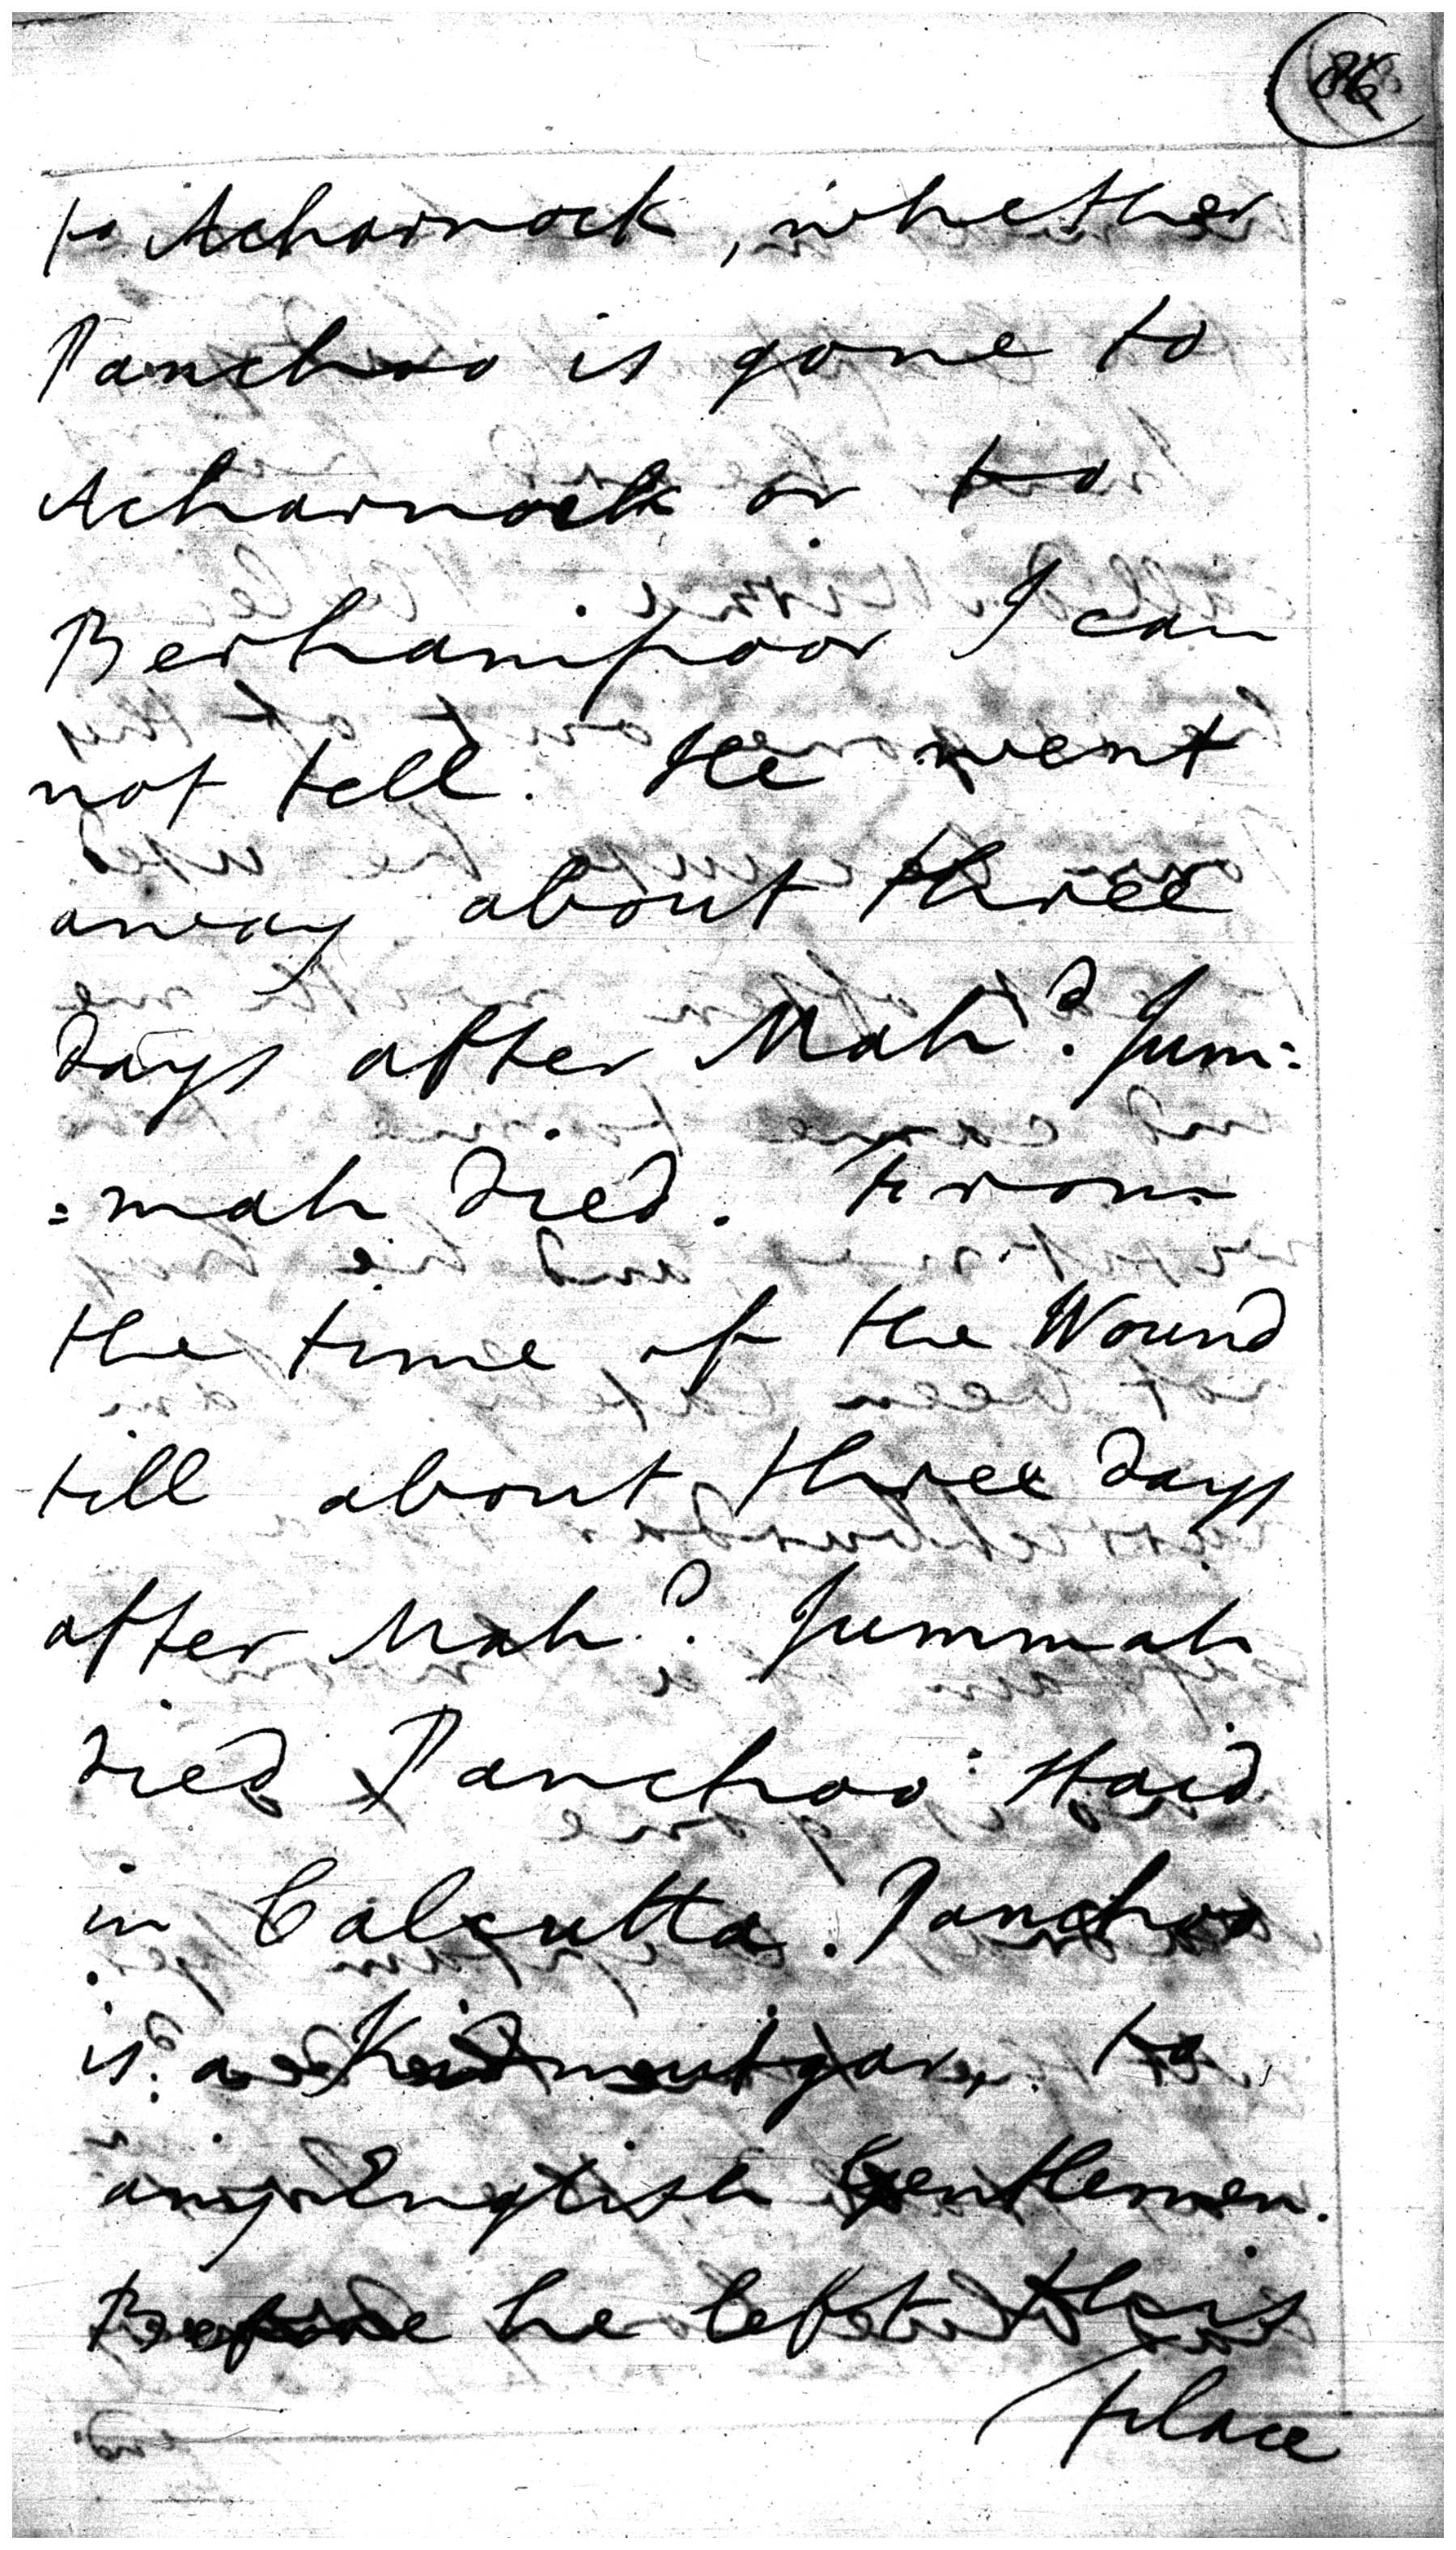 86
to Acharnock, whether
Panchoo is gone to
Acharnock or to
Berhampoor I can
not tell. He went
away about three
days after Mahd. Jum=
=mah died. From
the time of the Wound
till about three days
after Mahd. Jummah
died Panchoo staid
in Calcutta. Panchoo
is a Kidmutgar to
any English Gentlemen.
Before he left this
place